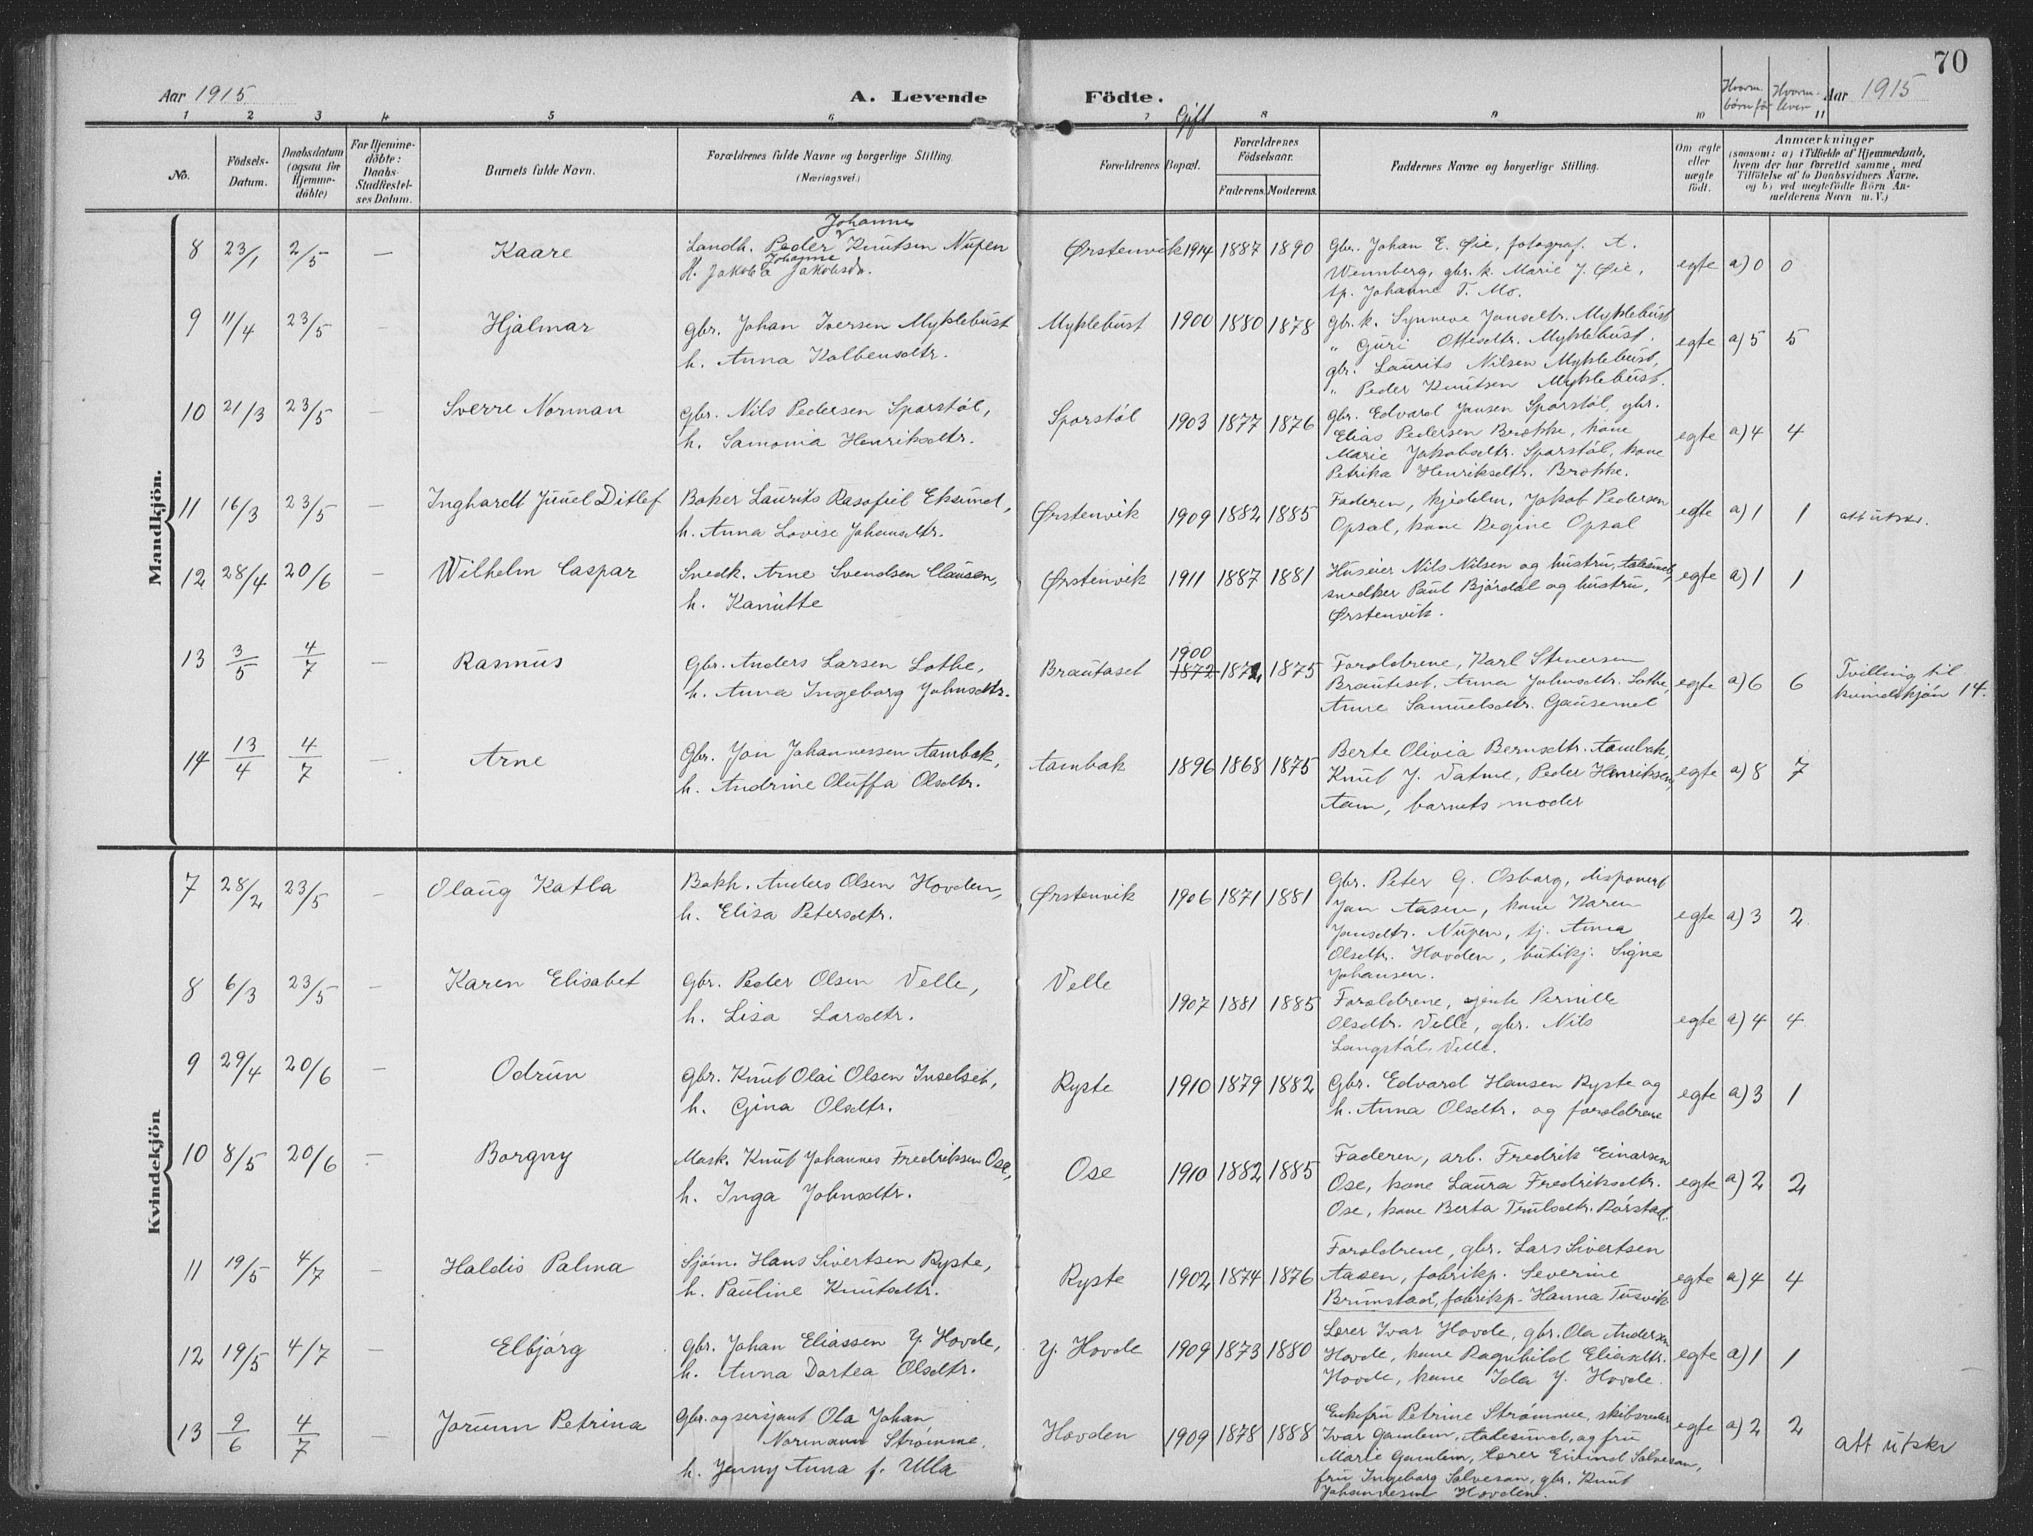 70
Aar 1915
A. Levende
Födte.
Gift
Hvorm. børn før
Hvorm. lever
Aar 1915
1 2 3 4 5 6 7 8 9 10 11
No.
Födsels-Datum.
Daabsdatum (ogsaa for Hjemme-döbte)
For Hjemme-döbte: Daabs-Stadfæstelses Datum.
Barnets fulde Navn.
Forældrenes fulde Navne og borgerlige Stilling. (Næringsvei.)
Forældrenes Bopæl.
Forældrenes Födselsaar.
Faderens. Moderens.
Faddernes Navne og borgerlige Stilling.
Om ægte eller uægte födt.
Anmærkninger
(saasom: a) i Tilfælde af Hjemmedaab, hvem der har forrettet samme, med Tilföielse af to Daabsvidners Navne. og b) ved uægtefödte Börn Anmelderens Navn m. V.)
Mandkjön.
8 23/1 2/5 — Kaare
Johannes
Landh. Peder Knutsen Nupen
Johanne
H. Jakoba Jakobsdr.
Ørstenvik 1914 1887 1890
Gbr. Johan E. Øie, fotograf. A.
Wennberg, gbr. k. Marie J. Øie,
tp. Johanne T. Mo.
egte a) 0 0
9 11/4 23/5 — Hjalmar
Gbr. Johan Iversen Myklebust
h. Anna Kolbensdtr.
Myklebust 1900 1880 1878
Gbr. k. Synneve Jonsdtr. Myklebust
" Guri Ottesdtr. Myklebust.
gbr. Laurits Nilsen Myklebust,
" Peder Knutsen Myklebust.
egte a) 5 5
10 21/3 23/5 — Sverre Norman
Gbr. Nils Pedersen Sporstøl,
h. Samonia Henriksdtr.
Sporstøl 1903 1877 1876
Gbr. Edvard Jansen Sporstøl, gbr.
Elias Pedersen Brække, kone
Marie Jakobsdtr. Sporstøl, kone
Petrika Henriksdtr. Brække.
egte a) 4 4
11 16/3 23/5 — Inghardt Juuel Ditlef
Baker Laurits Rasafiel Eksund,
h. Anna Lovise Johansdtr.
Ørstenvik 1909 1882 1885
Faderen, kjedelm. Jakob Pedersen
Opsal, kone Regine Opsal
egte a) 1 1 att utskr.
12 28/4 20/6 — Wilhelm Caspar
Snedk. Arne Svendsen Clausen,
h. Kanutte
Ørstenvik 1911 1887 1881
Huseier Nils Nilsen og hustru, Aalesund,
snedker Paul Bjørdal og hustru,
Ørstenvik.
egte a) 1 1
13 3/5 4/7 — Rasmus
Gbr. Anders Larsen Lothe,
h. Anna Ingeborg Johnsdtr.
Brautaset 1900 1872 1875
Forældrene, Karl Stenersen
Brauteset, Anna Johnsdtr. Lothe,
Anne Samuelsdtr. Gausemel
egte a) 6 6
Tvilling til
kvindekjön 14.
14 13/4 4/7 — Arne
Gbr. Jon Johannessen Aambak,
h. Andrine Oluffa Olsdtr.
Aambak 1896 1868 1875
Berte Olivia Bernsdtr. Aambak,
Knut J. Vatne, Peder Henriksen
Aam, barnets moder
egte a) 8 7
Kvindekjön
7 28/2 23/5 — Olaug Katla
Bokh. Anders Olsen Hovden,
h. Elisa Petersdtr.
Ørstenvik 1906 1871 1881
Gbr. Peter G. Osborg, disponent
Jon Aasen, kone Karen
Jonsdtr. Nupen, tj. Anna
Olsdtr. Hovden, butikj. Signe
Johansen.
egte a) 3 2
8 6/3 23/5 — Karen Elisabet
Gbr. Peder Olsen Velle,
h. Lisa Larsdtr.
Velle 1907 1881 1885
Forældrene, gjente Pernille
Olsdtr. Velle, gbr. Nils
Langstøl, Velle.
egte a) 4 4
9 29/4 20/6 — Odrun
Gbr. Knut Olai Olsen Inselset,
h. Gina Olsdtr.
Ryste 1910 1879 1882
Gbr. Edvard Hansen Ryste og
h. Anna Olsdtr. og forældrene
egte a) 3 1
10 8/5 20/6 — Borgny
Mask. Knut Johannes Fredriksen Ose,
h. Inga Johnsdtr.
Ose 1910 1882 1885
Faderen, arb. Fredrik Einarsen
Ose, kone Laura Fredriksdtr.
Ose, kone Berta Trulsdtr. Rørstad.
egte a) 2 2
11 19/5 4/7 — Haldis Palma
Sjøm. Hans Sivertsen Ryste,
h. Pauline Knutsdtr.
Ryste 1902 1874 1876
Forældrene, gbr. Lars Sivertsen
Aasen, fabrikp. Severine
Brunstad, fabrikp. Hanna Tusvik
egte a) 4 4
12 19/5 4/7 — Elbjørg
Gbr. Johan Eliassen Y. Hovde,
h. Anna Dortea Olsdtr.
Y. Hovde 1909 1873 1880
Lærer Ivar Hovde, gbr. Ola Andersen
Hovde, kone Ragnhild Eliasdtr.
Hovde, kone Ida Y. Hovde.
egte a) 1 1
13 9/6 4/7 — Jorunn Petrina
Gbr. og sersjant Ola Johan
Normann Strømme,
h. Jenny Anna f. Ulla
Hovden 1909 1878 1888
Enkefru Petrine Strømme, skibsreder
Ivar Gamlem, Aalesund, og fru
Marie Gamlem, lærer Eivind Salvesan,
fru Ingeborg Salvesan, gbr. Knut
Johannesen Hovden.
egte a) 2 2 att utskr